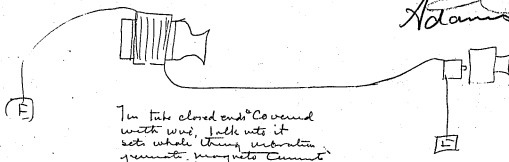 Adams
E
E
Tin tube closed ends Covered
with wire, talk into it
sets whole thing vibrating
generate magneto Currents